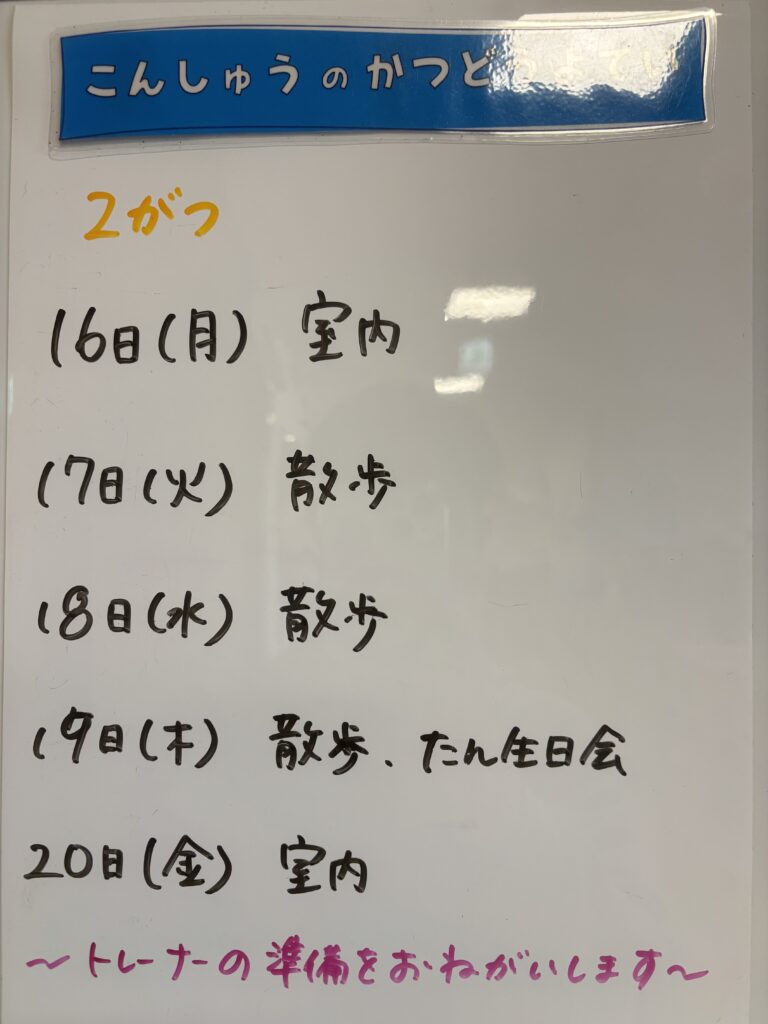 こんしゅうのかつどうよてい
2がつ
16日(月) 室内
17日(火) 散歩
18日(水) 散歩
19日(木) 散歩、たん生日会
20日(金) 室内
〜トレーナーの準備をおねがいします〜